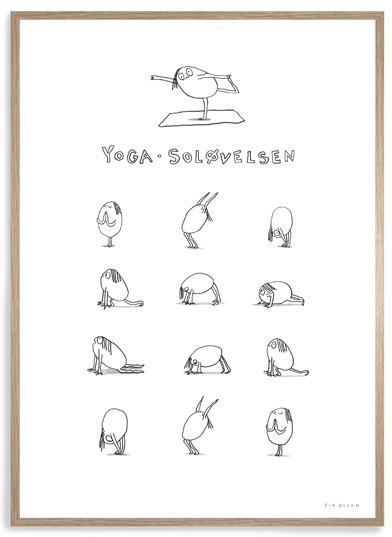 YOGA · SOLØVELSEN
PIA OLSEN